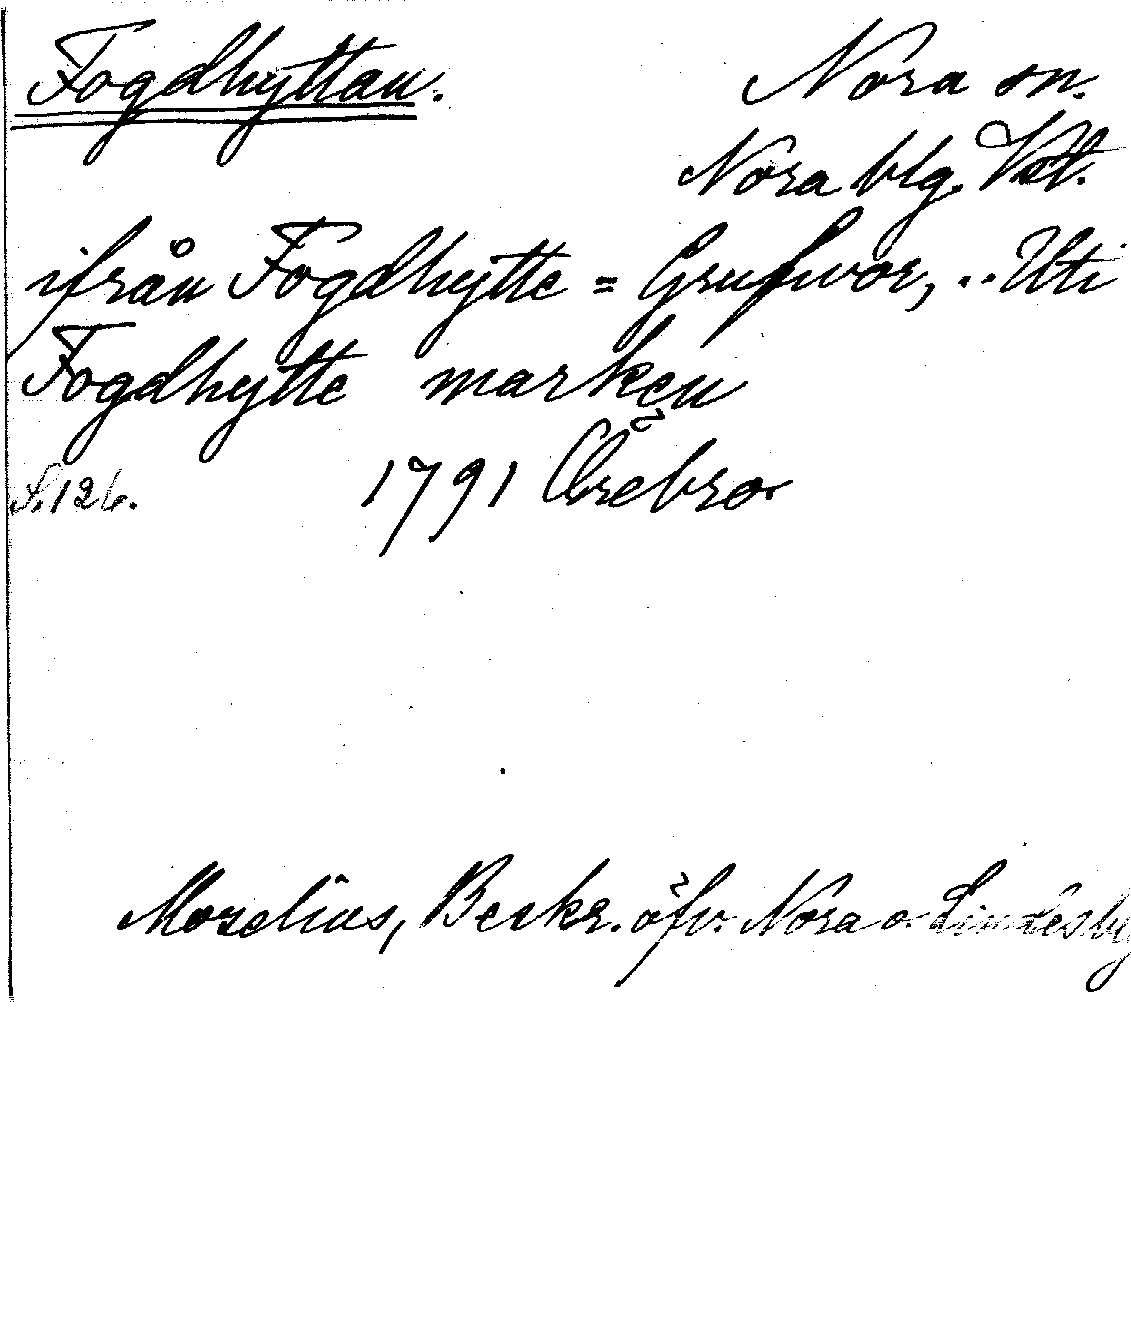 Fogdhyttan. Nora sn.
Nora blg. Vstl.
ifrån Fogdhytte = Grufwor, .. Uti
Fogdhytte marken
S. 126. 1791 Örebro
Moselius, Beskr. öfv. Nora o. Lindesbg